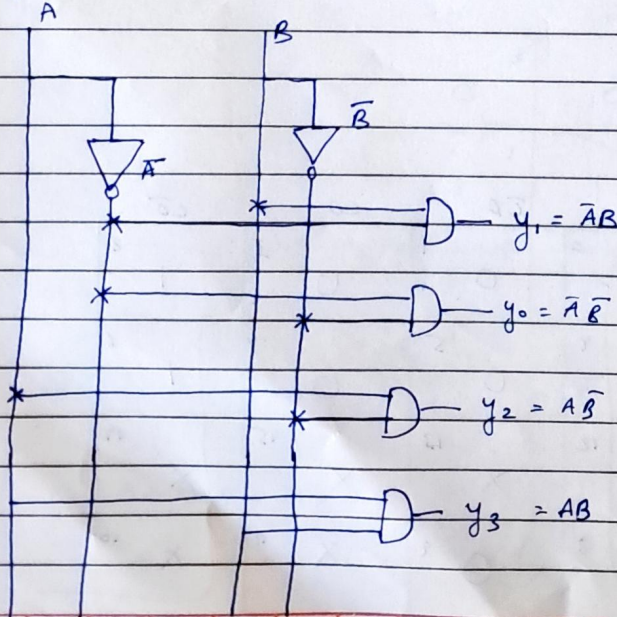 A
B
B̅
A̅
y₁ = A̅B
y₀ = A̅ B̅
y₂ = AB̅
y₃ = AB